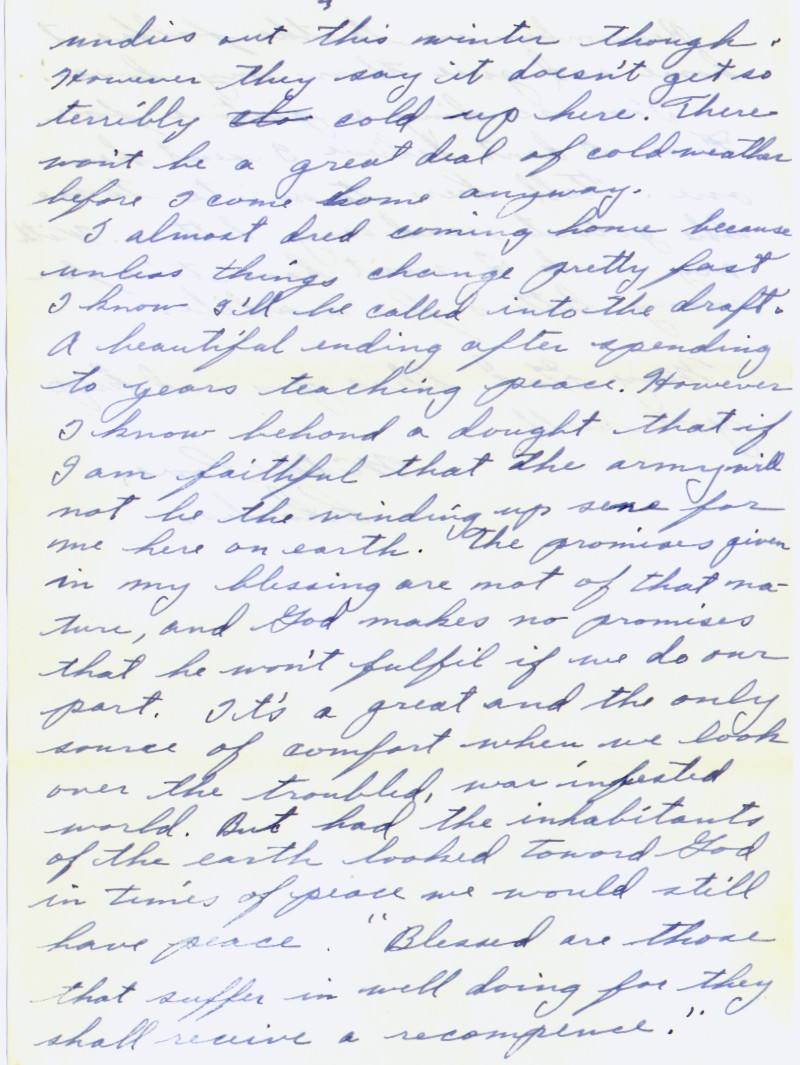 undies out this winter though.
However they say it doesn't get so
terribly cold up here. There
won't be a great deal of cold weather
before I come home anyway.
I almost dred coming home because
unless things change pretty fast
I know I'll be called into the draft.
A beautiful ending after spending
to years teaching peace. However
I know behond a dought that if
I am faithful that the army will
not be the winding up sene for
me here on earth. The promises given
in my blessing are not of that na-
ture, and God makes no promises
that he won't fulfil if we do our
part. It's a great and the only
source of comfort when we look
over the troubled, war infested
world. But had the inhabitants
of the earth looked toward God
in times of peace we would still
have peace. "Blessed are those
that suffer in well doing for they
shall receive a recompence."